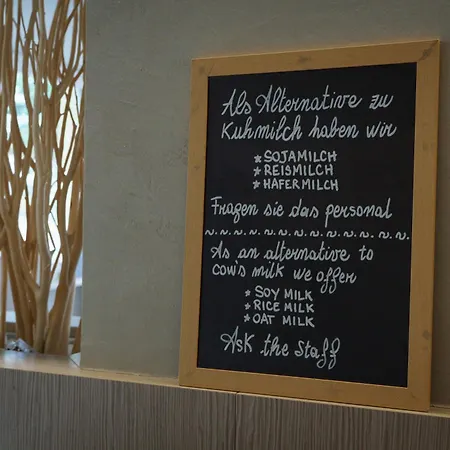 Als Alternative zu
Kuhmilch haben wir
*SOJAMILCH
*REISMILCH
*HAFERMILCH
Fragen sie das personal
As an alternative to
cow's milk we offer
*SOY MILK
*RICE MILK
*OAT MILK
Ask the Staff